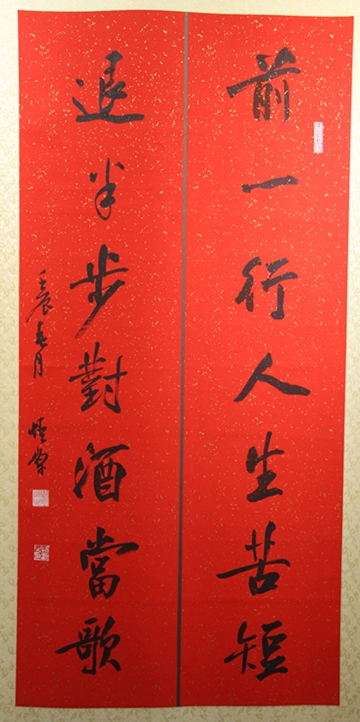 前一行人生苦短
退半步對酒當歌
壬辰春月